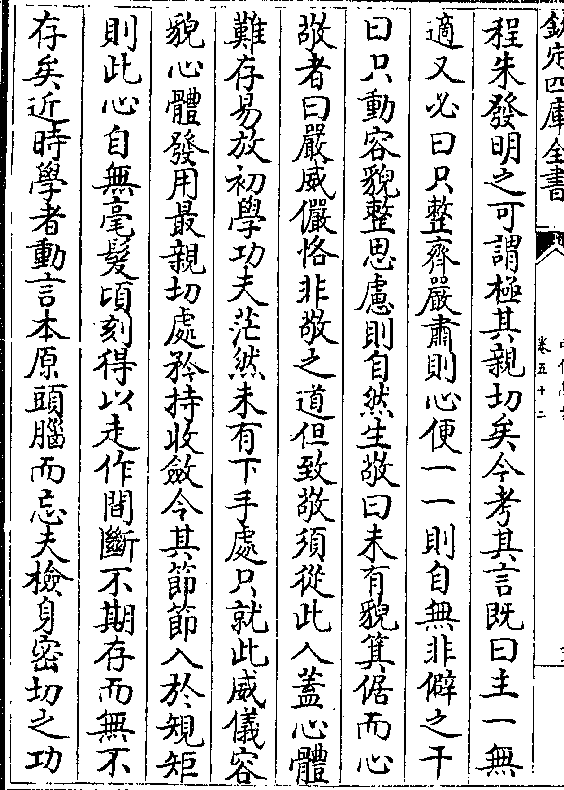 欽定四庫全書
卷五十二
程朱發明之可謂極其親切矣今考其言既曰主一無
適又必曰只整齊嚴肅則心便一一則自無非僻之干
曰只動容貌整思慮則自然生敬曰未有貌箕倨而心
敬者曰嚴威儼恪非敬之道但致敬須從此入蓋心體
難存易放初學功夫茫然未有下手處只就此威儀容
貌心體發用最親切處矜持收斂令其節節入於規矩
則此心自無毫髮頃刻得以走作間斷不期存而無不
存矣近時學者動言本原頭腦而忘夫檢身密切之功